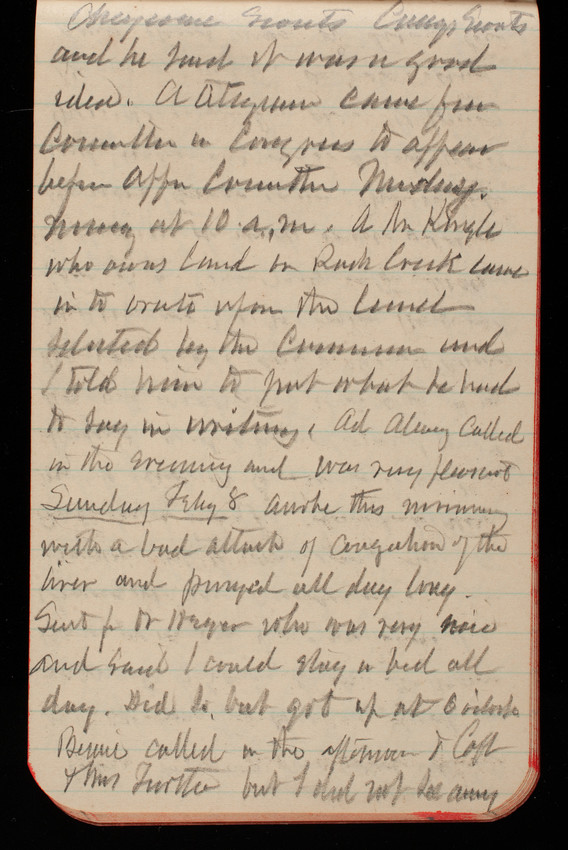 Cheyenne Scouts Scouts
and he said it was a good
idea. A telegram came from
Committee in Congress to appear
before Appn Committee
at 10 a.m. A Mr
who owns land on Rock Creek came
in to upon the land
selected by the Commission and
I told him to put what he had
to say in writing. Ad called
in the evening and was very pleasant
Sunday Feby 8 awoke this morning
with a bad attack of congestion of the
liver and purged all day long.
Sent for Dr who was very nice
and said I could stay in bed all
day. Did so, but got up at 6 oclock
called in the afternoon & Capt
& Mrs but I did not see any